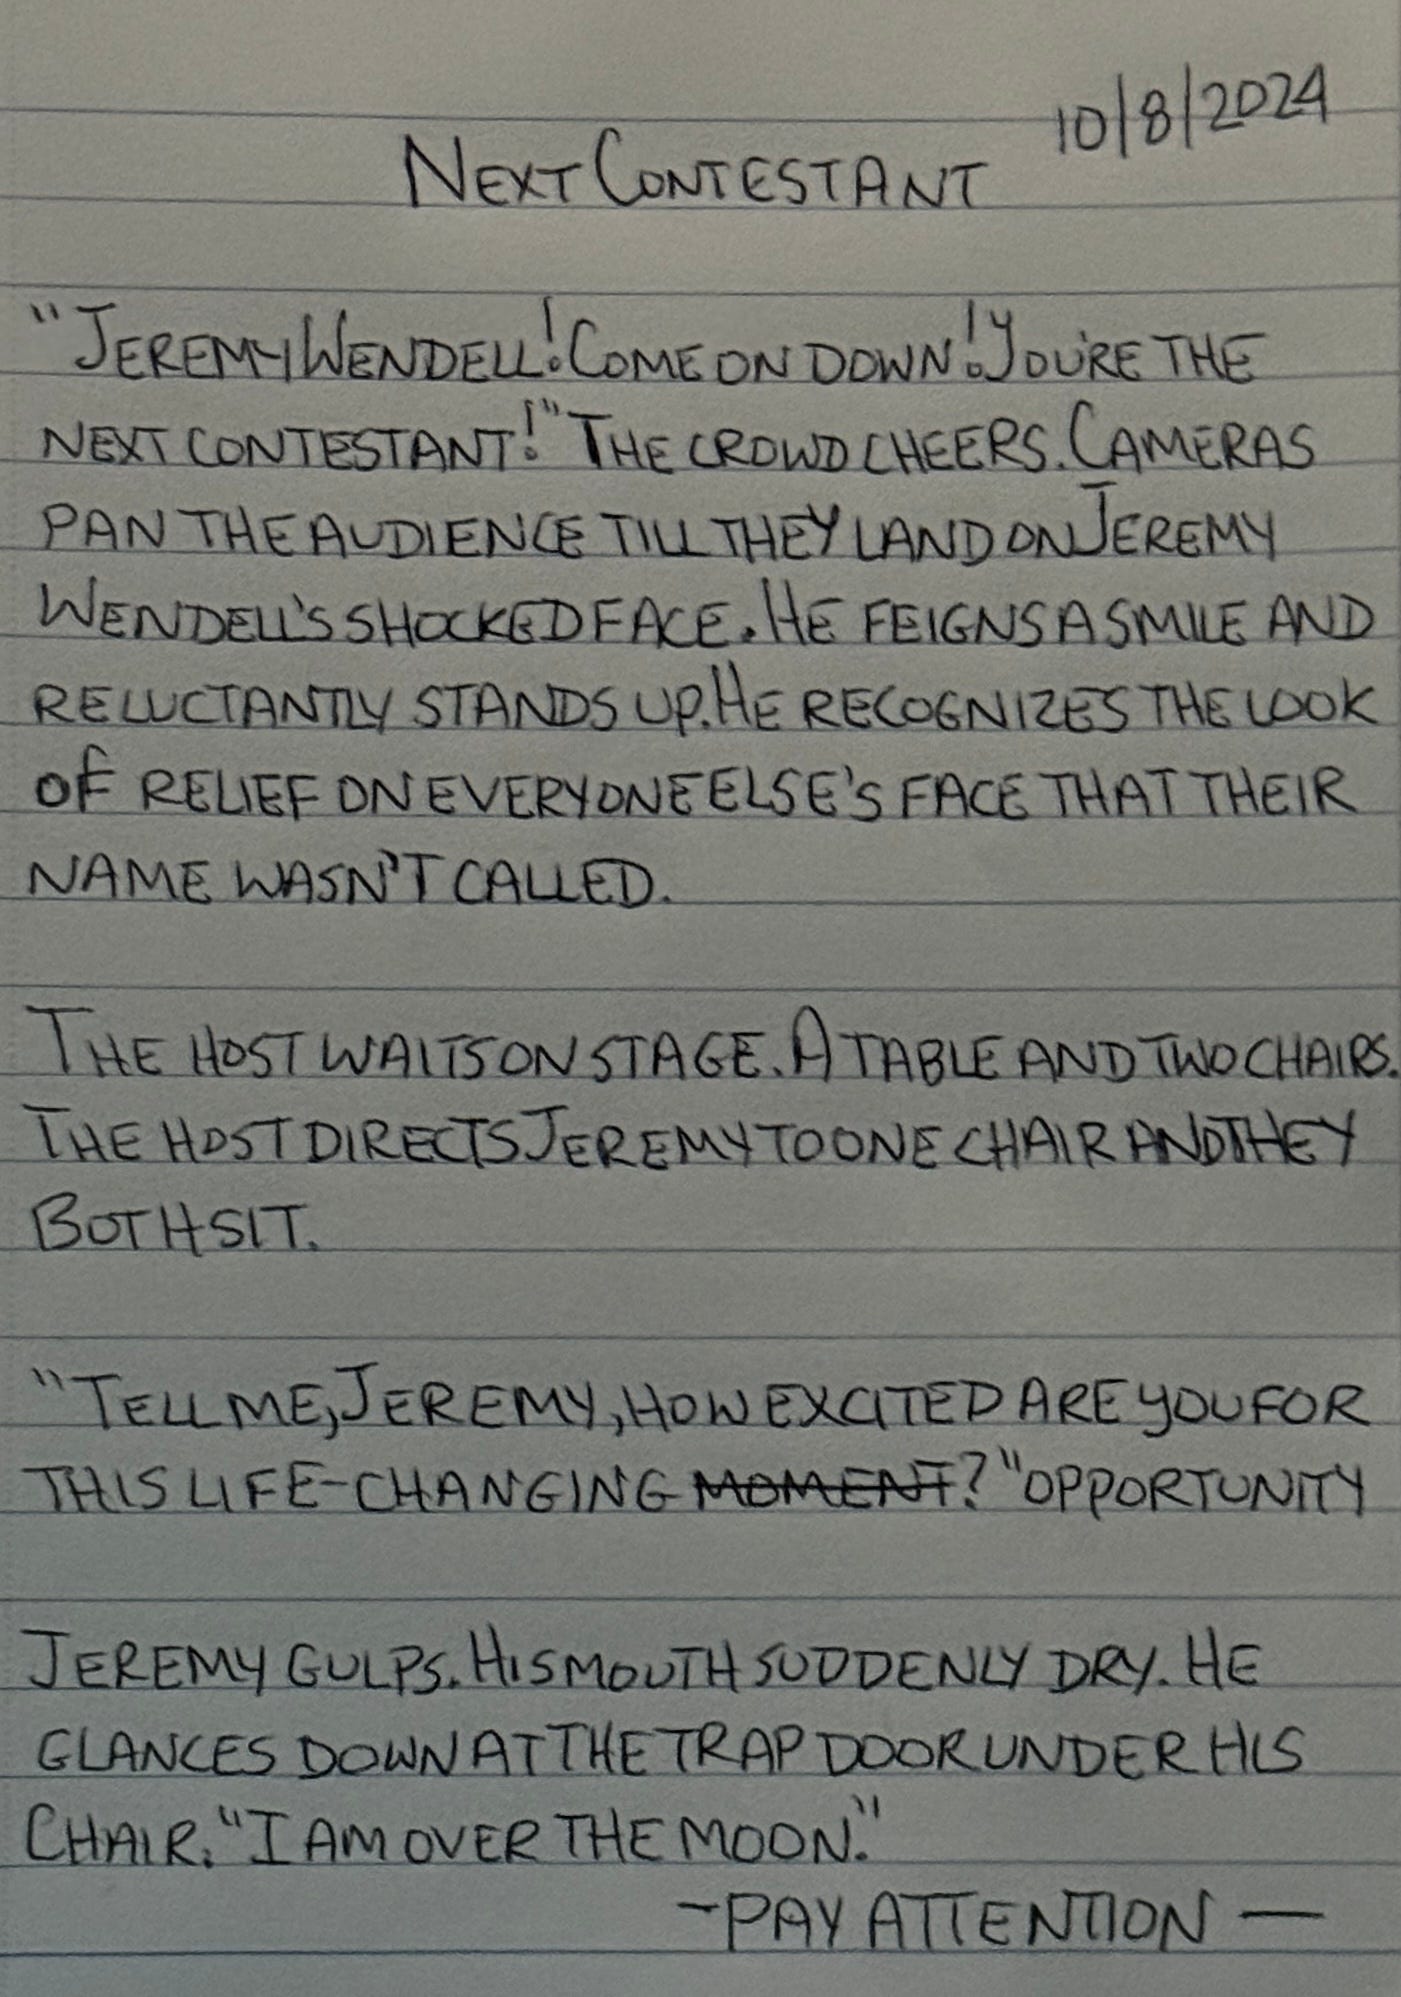 10/8/2024
NEXT CONTESTANT
"JEREMY WENDELL! COME ON DOWN! YOU'RE THE
NEXT CONTESTANT!" THE CROWD CHEERS. CAMERAS
PAN THE AUDIENCE TILL THEY LAND ON JEREMY
WENDELL'S SHOCKED FACE. HE FEIGNS A SMILE AND
RELUCTANTLY STANDS UP. HE RECOGNIZES THE LOOK
OF RELIEF ON EVERYONE ELSE'S FACE THAT THEIR
NAME WASN'T CALLED.
THE HOST WAITS ON STAGE. A TABLE AND TWO CHAIRS.
THE HOST DIRECTS JEREMY TO ONE CHAIR AND THEY
BOTH SIT.
"TELL ME, JEREMY, HOW EXCITED ARE YOU FOR
THIS LIFE-CHANGING MOMENT?" OPPORTUNITY
JEREMY GULPS. HIS MOUTH SUDDENLY DRY. HE
GLANCES DOWN AT THE TRAP DOOR UNDER HIS
CHAIR. "I AM OVER THE MOON."
-PAY ATTENTION —